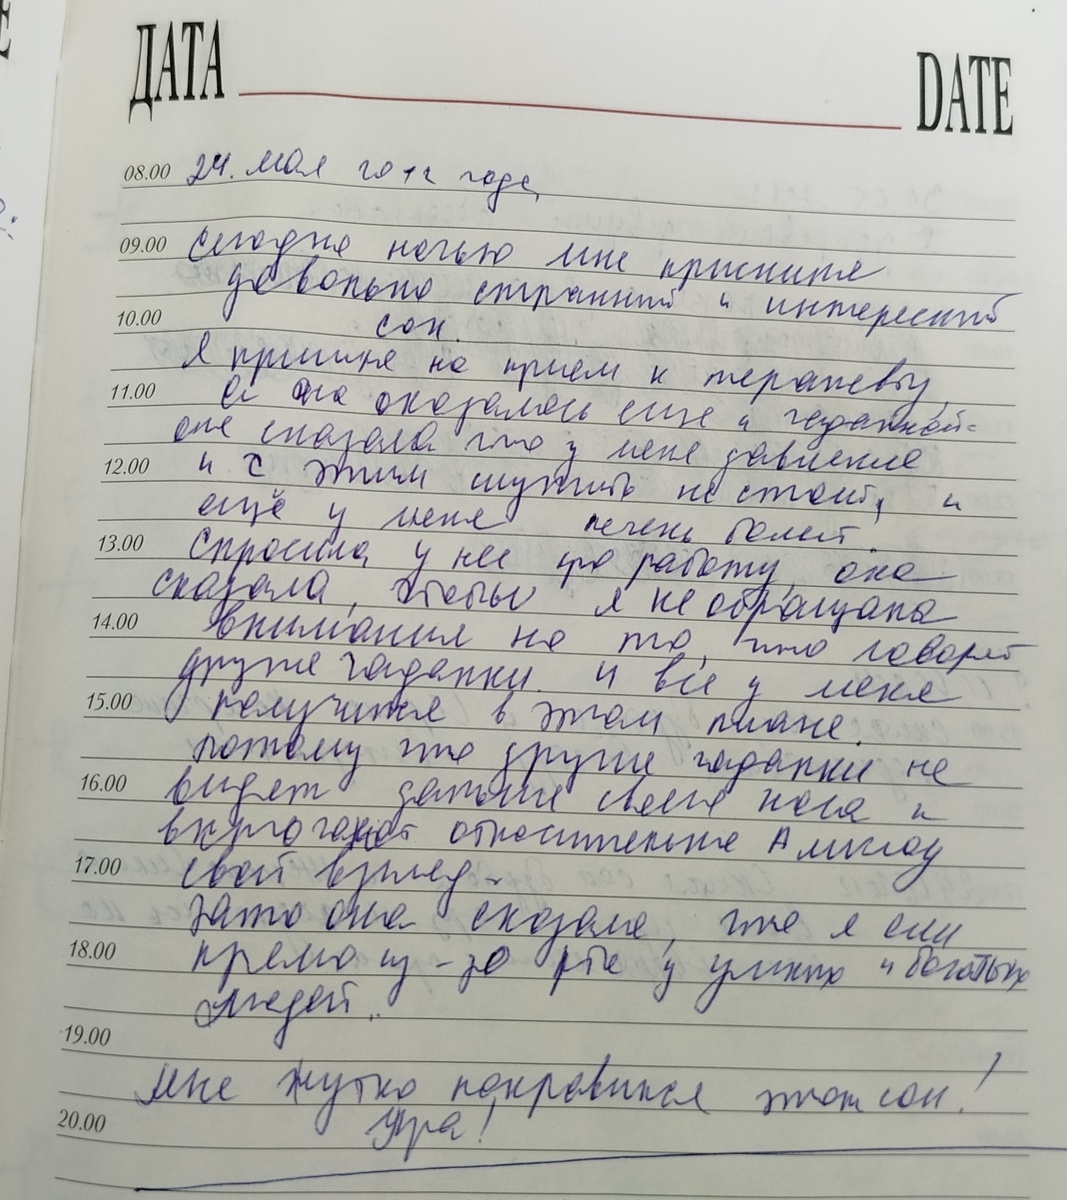 ДАТА DATE
08.00 24. мая 2012 года
09.00 Сегодня ночью мне приснился
довольно странный и интересный
10.00 сон.
Я пришла на прием к терапевту,
11.00 а она оказалась еще и гадалкой.
она сказала что у меня давление
12.00 и с этим шутить не стоит, и
ещё у меня печень болит.
13.00 Спросила у нее про работу, она
сказала, чтобы я не обращала
14.00 внимания на то, что говорят
другие гадалки. И все у меня
15.00 получится в этом плане.
потому что другие гадалки не
16.00 видят дальше своего носа и
относительно
17.00 свой взгляд.
Зато она сказала, что я ем
18.00 прямо из-за рта у умных и богатых
людей.
19.00
Мне жутко понравился этот сон!
20.00 Ура!